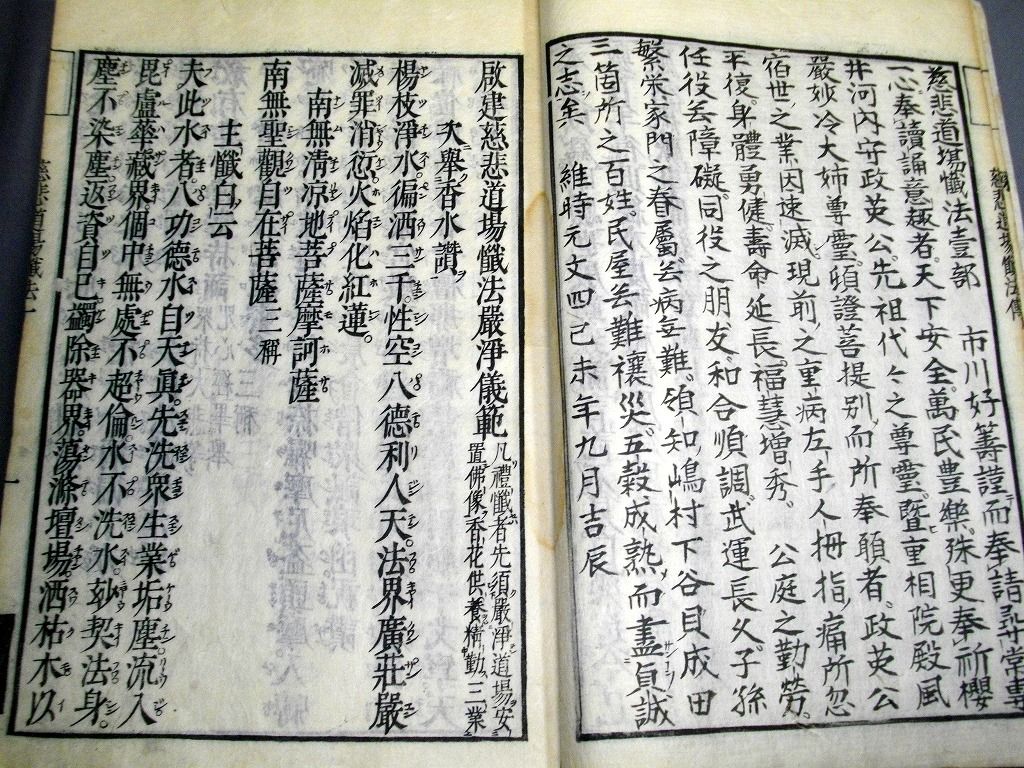 慈悲道場懺法傳
慈悲道場懺法壹部　市川好籌謹而奉請尋常專
一心奉讀誦意趣者天下安全萬民豊樂殊更奉祈櫻
井河内守政英公先祖代々之尊靈曁重相院殿風
嚴妙冷大姉尊靈頓證菩提別而所奉願者政英公
宿世之業因速滅現前之重病左手人拇指痛所忽
平復身體勇健壽命延長福慧增秀公庭之勤勞
任役無障礙同役之朋友和合順調武運長久子孫
繁栄家門之眷屬無病無難領知嶋村下谷貝成田
三箇所之百姓民屋無難禳災五穀成熟而盡貞誠
之志矣　維時元文四己未年九月吉辰
啟建慈悲道場懺法嚴淨儀範　凡禮懺者先須嚴淨道場安
置佛像香花供養精勤三業
次舉香水讚
楊枝淨水徧洒三千性空八德利人天法界廣莊嚴
滅罪消愆火焰化紅蓮
南無淸凉地菩薩摩訶薩
南無聖觀自在菩薩三稱
主懺白云
夫此水者八功德水自天眞先洗衆生業垢塵流入
毘盧華藏界個中無處不超倫水不洗水妙契法身
塵不染塵返資自已蠲除器界蕩滌壇場洒枯木以
慈悲道場懺法